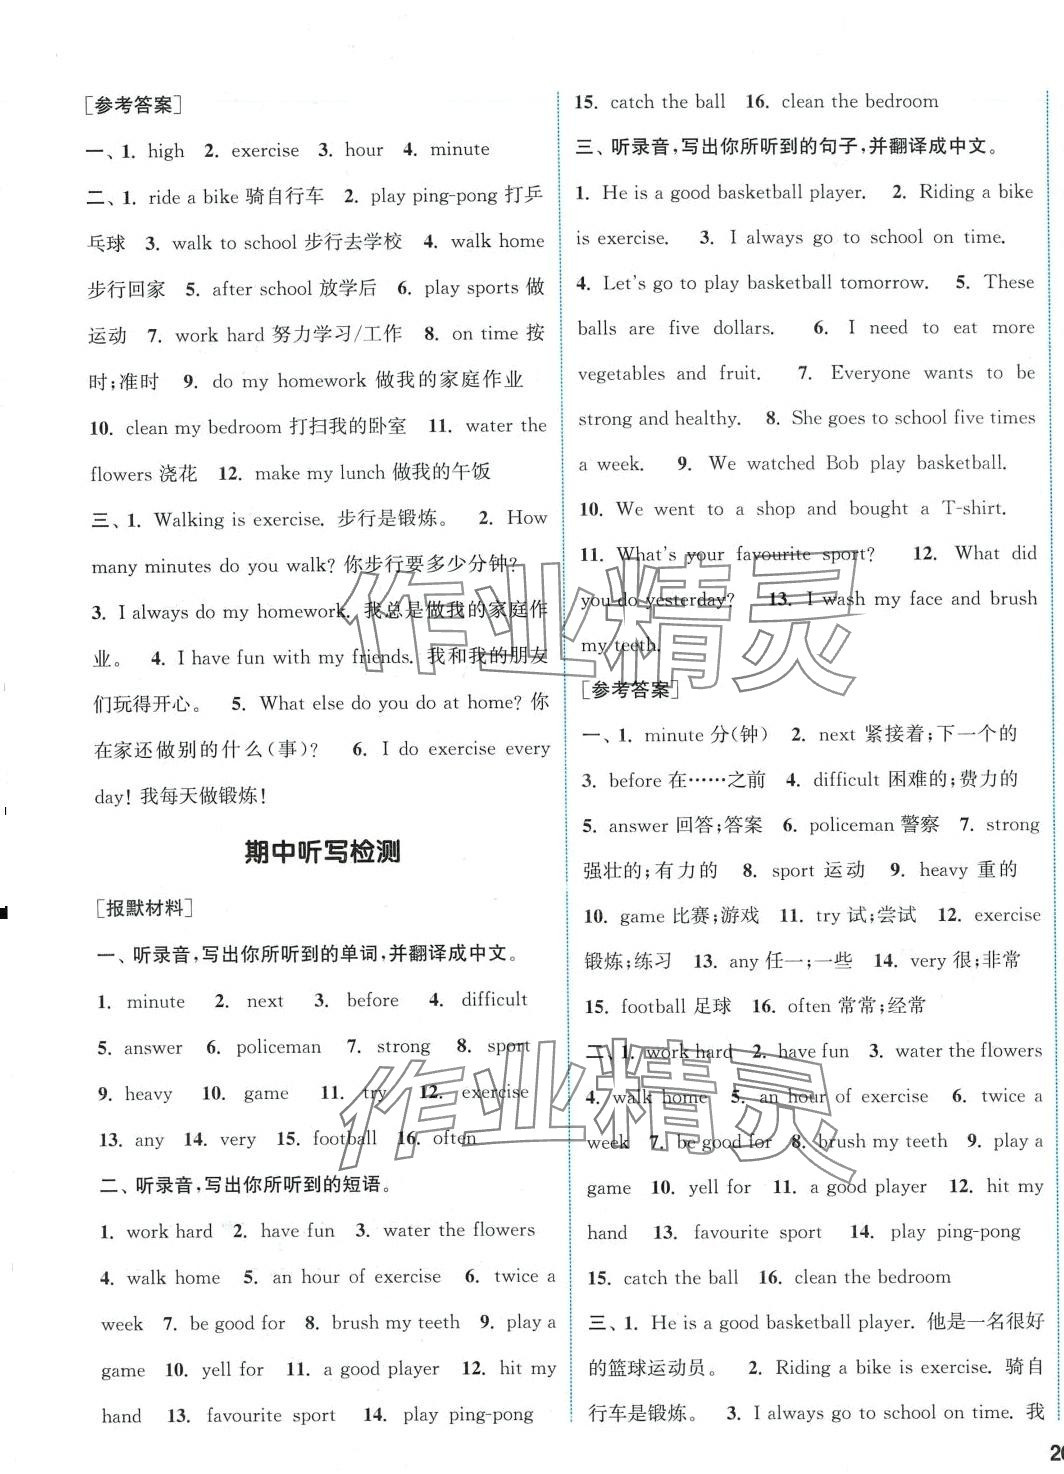 [参考答案]
一、1. high 2. exercise 3. hour 4. minute
二、1. ride a bike 骑自行车 2. play ping-pong 打乒
乓球 3. walk to school 步行去学校 4. walk home
步行回家 5. after school 放学后 6. play sports 做
运动 7. work hard 努力学习/工作 8. on time 按
时;准时 9. do my homework 做我的家庭作业
10. clean my bedroom 打扫我的卧室 11. water the
flowers 浇花 12. make my lunch 做我的午饭
三、1. Walking is exercise. 步行是锻炼。 2. How
many minutes do you walk? 你步行要多少分钟?
3. I always do my homework. 我总是做我的家庭作
业。 4. I have fun with my friends. 我和我的朋友
们玩得开心。 5. What else do you do at home? 你
在家还做别的什么(事)? 6. I do exercise every
day! 我每天做锻炼!
期中听写检测
[报默材料]
一、听录音,写出你所听到的单词,并翻译成中文。
1. minute 2. next 3. before 4. difficult
5. answer 6. policeman 7. strong 8. sport
9. heavy 10. game 11. try 12. exercise
13. any 14. very 15. football 16. often
二、听录音,写出你所听到的短语。
1. work hard 2. have fun 3. water the flowers
4. walk home 5. an hour of exercise 6. twice a
week 7. be good for 8. brush my teeth 9. play a
game 10. yell for 11. a good player 12. hit my
hand 13. favourite sport 14. play ping-pong
15. catch the ball 16. clean the bedroom
三、听录音,写出你所听到的句子,并翻译成中文。
1. He is a good basketball player. 2. Riding a bike
is exercise. 3. I always go to school on time.
4. Let's go to play basketball tomorrow. 5. These
balls are five dollars. 6. I need to eat more
vegetables and fruit. 7. Everyone wants to be
strong and healthy. 8. She goes to school five times
a week. 9. We watched Bob play basketball.
10. We went to a shop and bought a T-shirt.
11. What's your favourite sport? 12. What did
you do yesterday? 13. I wash my face and brush
my teeth.
[参考答案]
一、1. minute 分(钟) 2. next 紧接着;下一个的
3. before 在……之前 4. difficult 困难的;费力的
5. answer 回答;答案 6. policeman 警察 7. strong
强壮的;有力的 8. sport 运动 9. heavy 重的
10. game 比赛;游戏 11. try 试;尝试 12. exercise
锻炼;练习 13. any 任一;一些 14. very 很;非常
15. football 足球 16. often 常常;经常
二、1. work hard 2. have fun 3. water the flowers
4. walk home 5. an hour of exercise 6. twice a
week 7. be good for 8. brush my teeth 9. play a
game 10. yell for 11. a good player 12. hit my
hand 13. favourite sport 14. play ping-pong
15. catch the ball 16. clean the bedroom
三、1. He is a good basketball player. 他是一名很好
的篮球运动员。 2. Riding a bike is exercise. 骑自
行车是锻炼。 3. I always go to school on time. 我
作业精灵
作业精灵